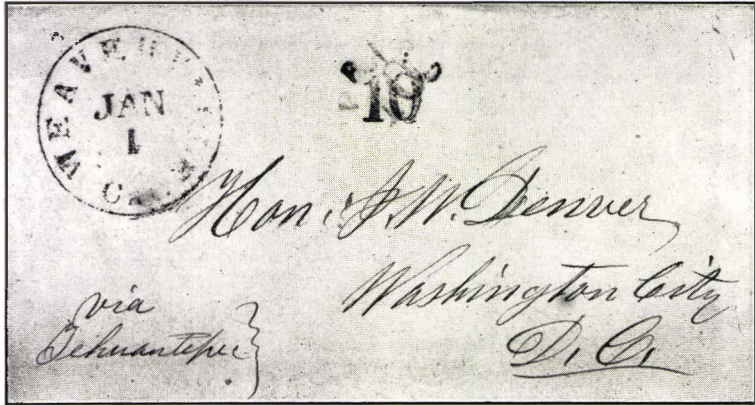 WEAVERVILLE
JAN
1
PAID
10
Hon. J. W. Denver
Washington City
D. C.
via
Tehuantepec